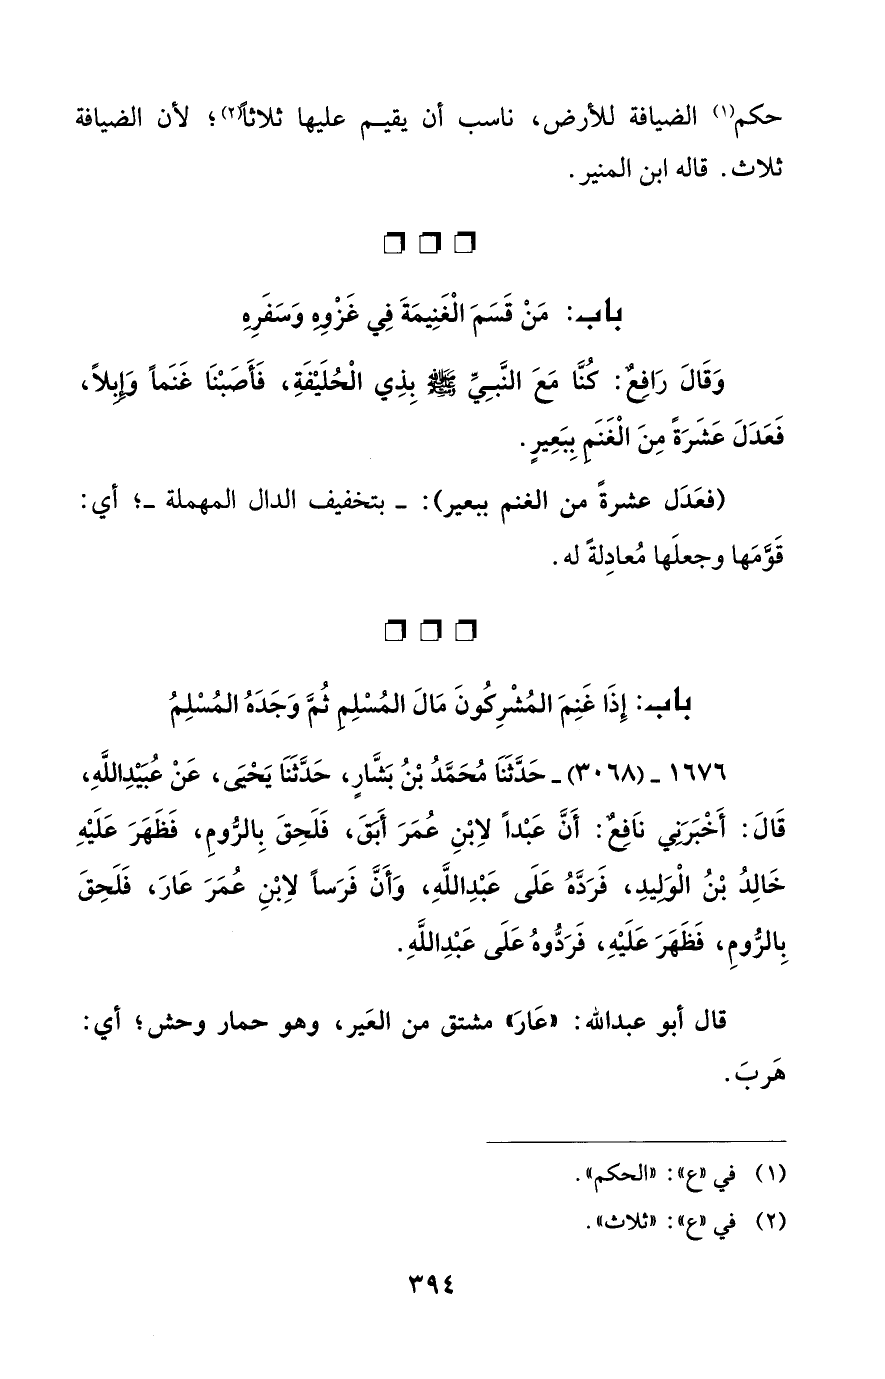 حكم(١) الضيافة للأرض، ناسب أن يقيم عليها ثلاثاً(٢)؛ لأن الضيافة
ثلاث. قاله ابن المنير.
باب: مَنْ قَسَمَ الْغَنِيمَةَ فِي غَزْوِهِ وَسَفَرِهِ
وَقَالَ رَافِعٌ: كُنَّا مَعَ النَّبِيِّ ﷺ بِذِي الْحُلَيْفَةِ، فَأَصَبْنَا غَنَماً وَإِبِلاً،
فَعَدَلَ عَشَرَةً مِنَ الْغَنَمِ بِبَعِيرٍ.
(فعَدَل عشرةً من الغنم ببعير): ـ بتخفيف الدال المهملة ـ؛ أي:
قَوَّمَها وجعلَها مُعادِلةً له.
باب: إِذَا غَنِمَ المُشْرِكُونَ مَالَ المُسْلِمِ ثُمَّ وَجَدَهُ المُسْلِمُ
١٦٧٦ ـ (٣٠٦٨) ـ حَدَّثَنَا مُحَمَّدُ بْنُ بَشَّارٍ، حَدَّثَنَا يَحْيَى، عَنْ عُبَيْدِاللَّهِ،
قَالَ: أَخْبَرَنِي نَافِعٌ: أَنَّ عَبْداً لاِبْنِ عُمَرَ أَبَقَ، فَلَحِقَ بِالرُّومِ، فَظَهَرَ عَلَيْهِ
خَالِدُ بْنُ الْوَلِيدِ، فَرَدَّهُ عَلَى عَبْدِاللَّهِ، وَأَنَّ فَرَساً لاِبْنِ عُمَرَ عَارَ، فَلَحِقَ
بِالرُّومِ، فَظَهَرَ عَلَيْهِ، فَرَدُّوهُ عَلَى عَبْدِاللَّهِ.
قال أبو عبدالله: «عَارَ» مشتق من العَير، وهو حمار وحش؛ أي:
هَربَ.
(١) في «ع»: «الحكم».
(٢) في «ع»: «ثلاث».
٣٩٤